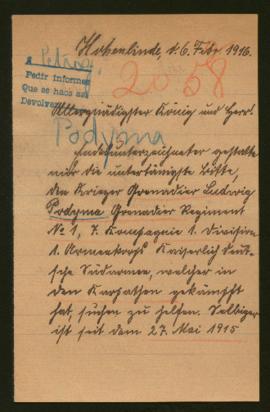 Hohenlinde, d. 6. Febr 1916.
A Petrog.
Pedir informes
Que se haos
Devolver
20 58
Allergnädigster König und Herr!
Podyma
Endesunterzeichneter gestatte
mir die untertänigste Bitte,
den Krieger Grenadier Ludwig
Podyma Grenadier Regiment
No 1, 7. Kompagnie 1. Division
1. Armeekorps Kaiserlich Deut-
sche Südarmee, welcher in
den Karpathen gekämpft
hat, suchen zu helfen. Selbiger
ist seit dem 27. Mai 1915